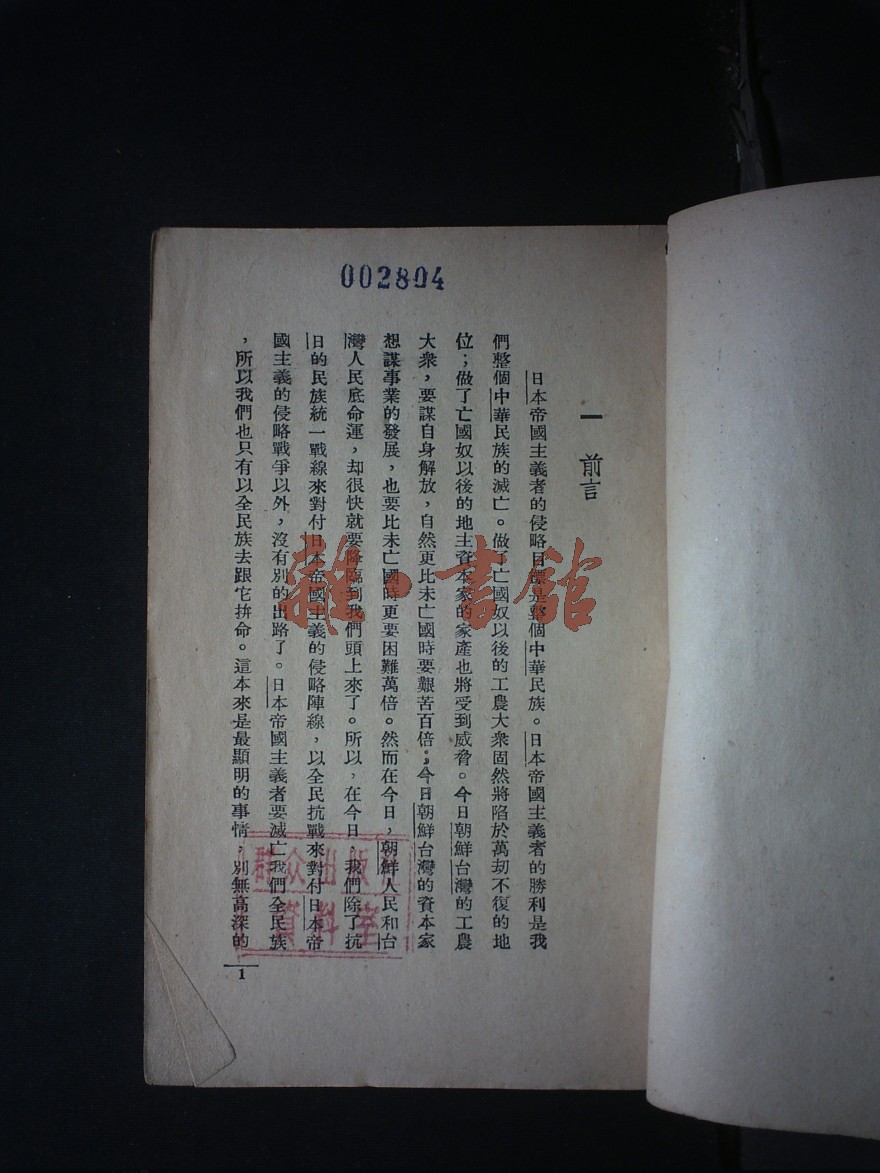 002804
一　前言
日本帝國主義者的侵略目標是整個中華民族。日本帝國主義者的勝利是我
們整個中華民族的滅亡。做了亡國奴以後的工農大衆固然將陷於萬劫不復的地
位；做了亡國奴以後的地主資本家的家產也將受到威脅。今日朝鮮台灣的工農
大衆，要謀自身解放，自然更比未亡國時要艱苦百倍；今日朝鮮台灣的資本家
想謀事業的發展，也要比未亡國時更要困難萬倍。然而在今日，朝鮮人民和台
灣人民底命運，却很快就要降臨到我們頭上來了。所以，在今日，我們除了抗
日的民族統一戰線來對付日本帝國主義的侵略陣線，以全民抗戰來對付日本帝
國主義的侵略戰爭以外，沒有別的出路了。日本帝國主義者要滅亡我們全民族
，所以我們也只有以全民族去跟它拚命。這本來是最顯明的事情，別無高深的
1
群众出版社
資料室
雜·書館